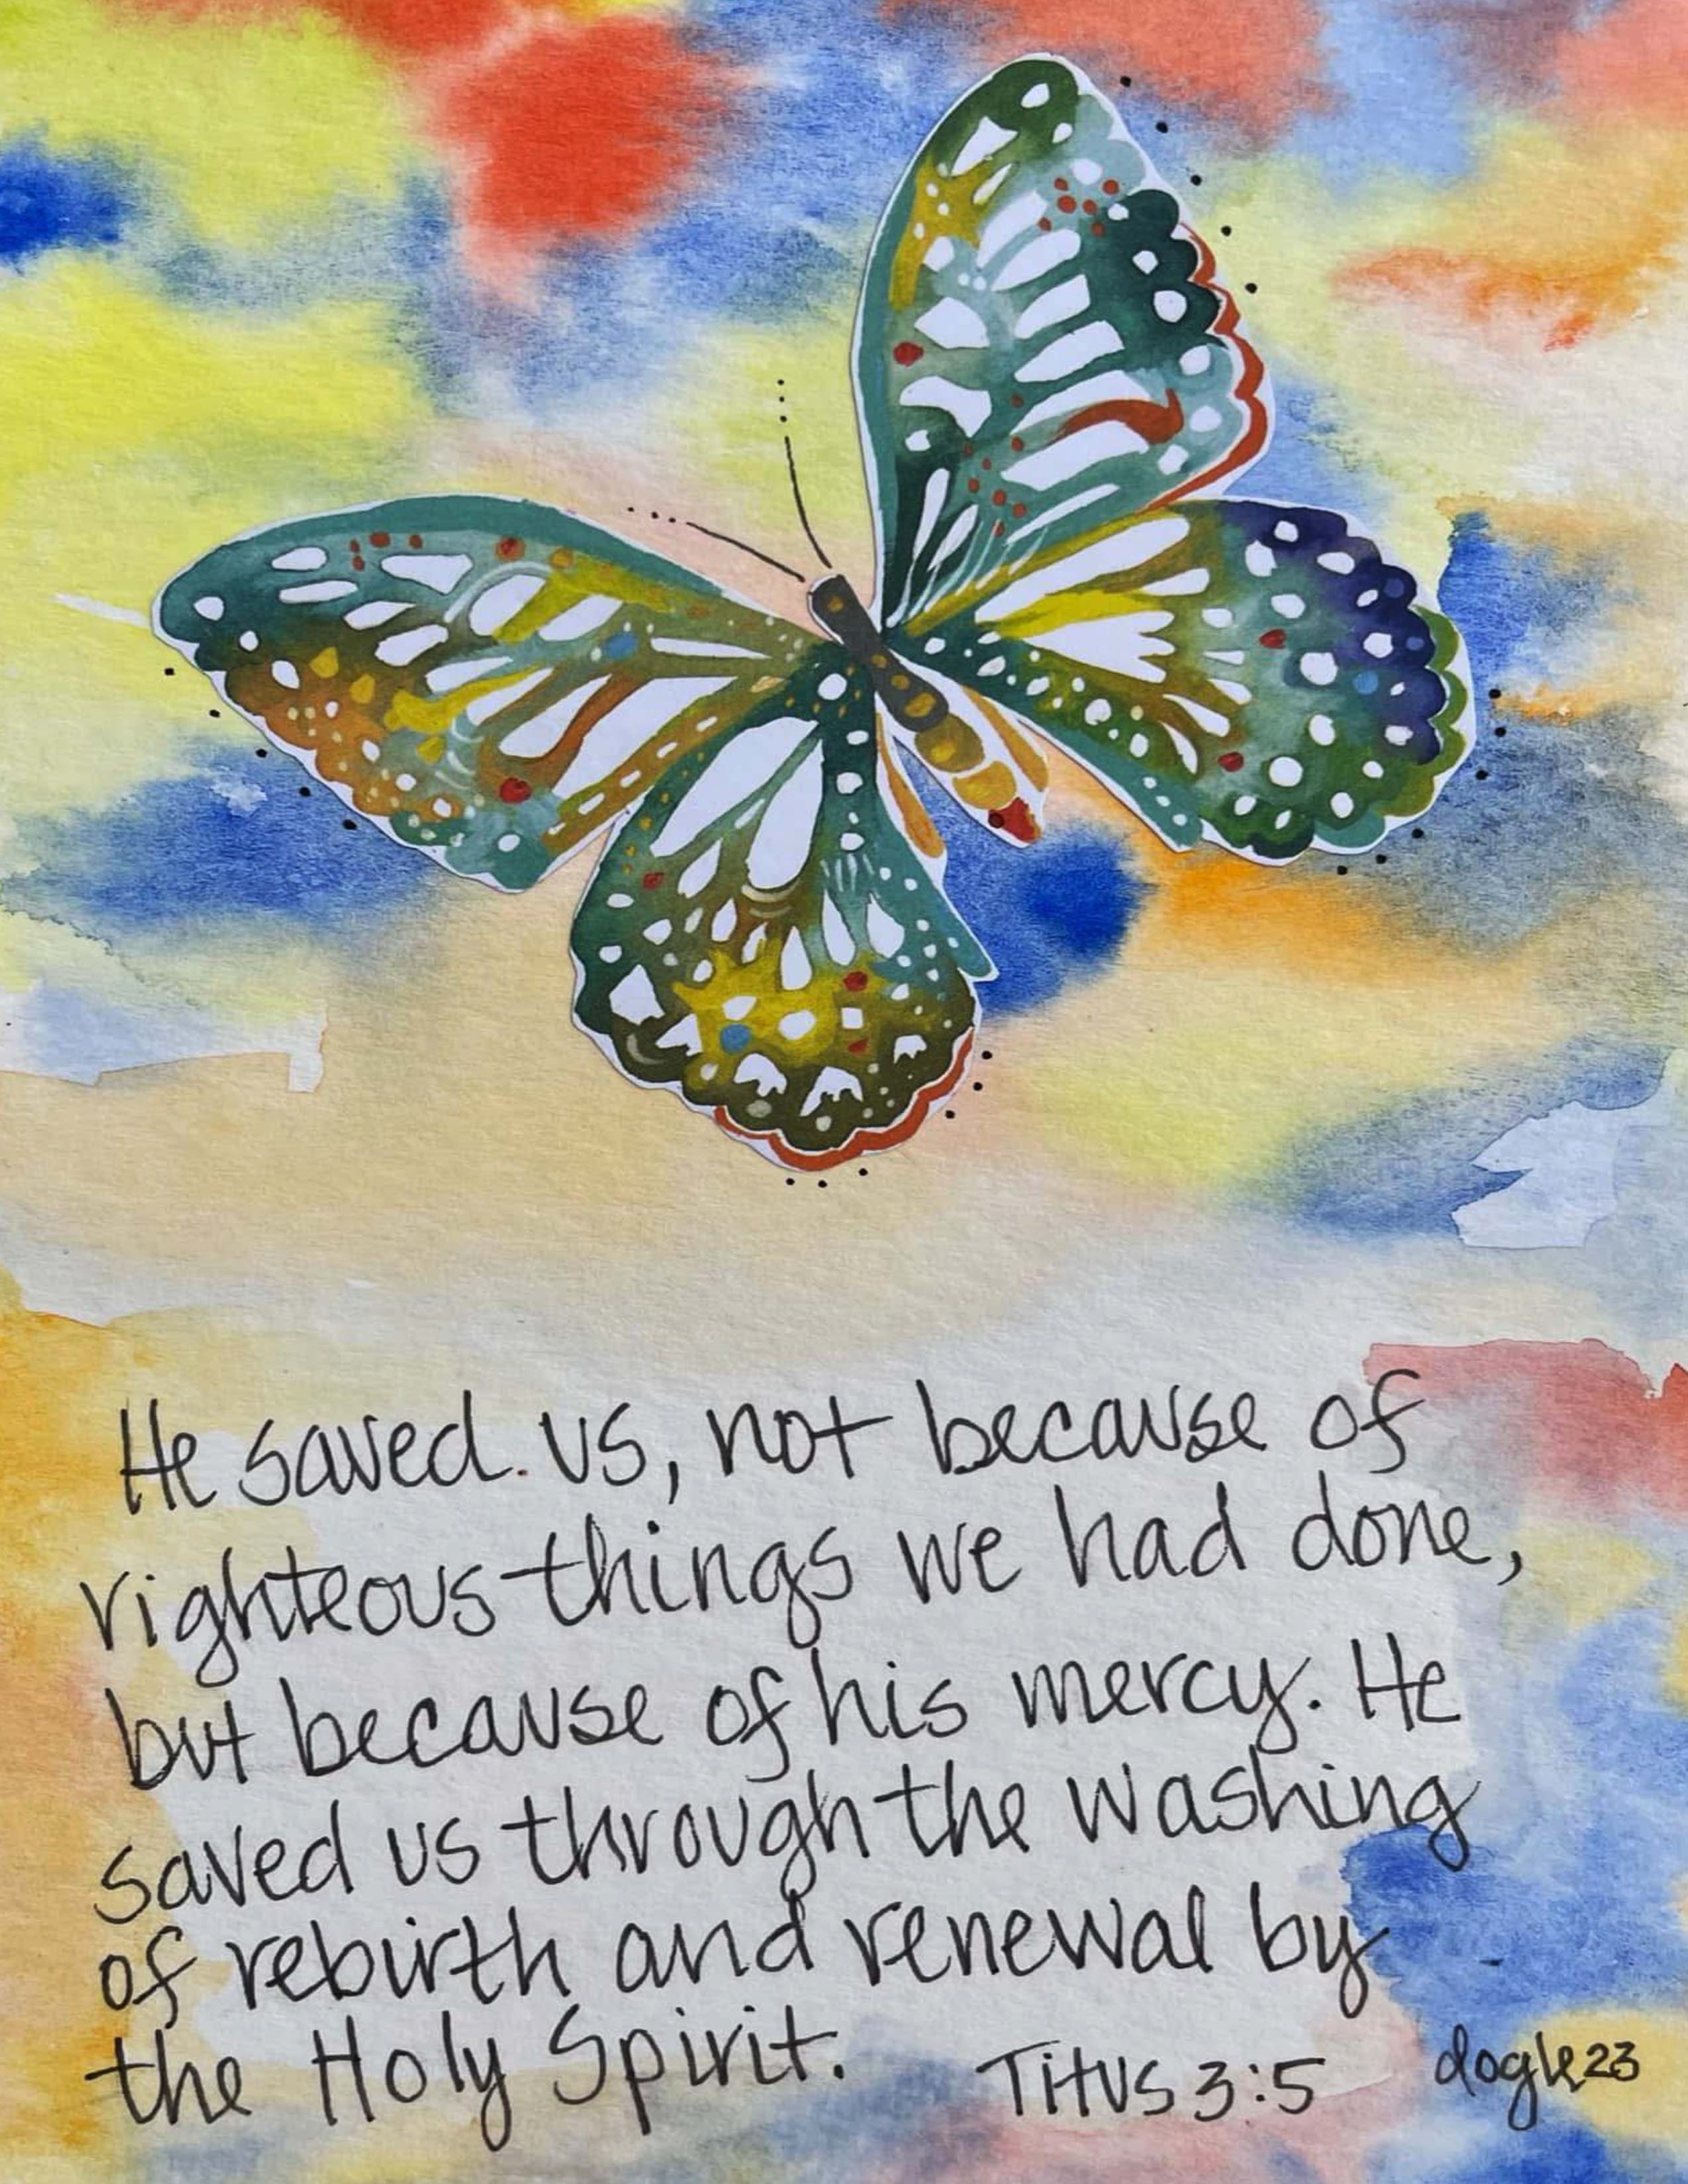 He saved us, not because of
righteous things we had done,
but because of his mercy. He
saved us through the washing
of rebirth and renewal by
the Holy Spirit.
Titus 3:5